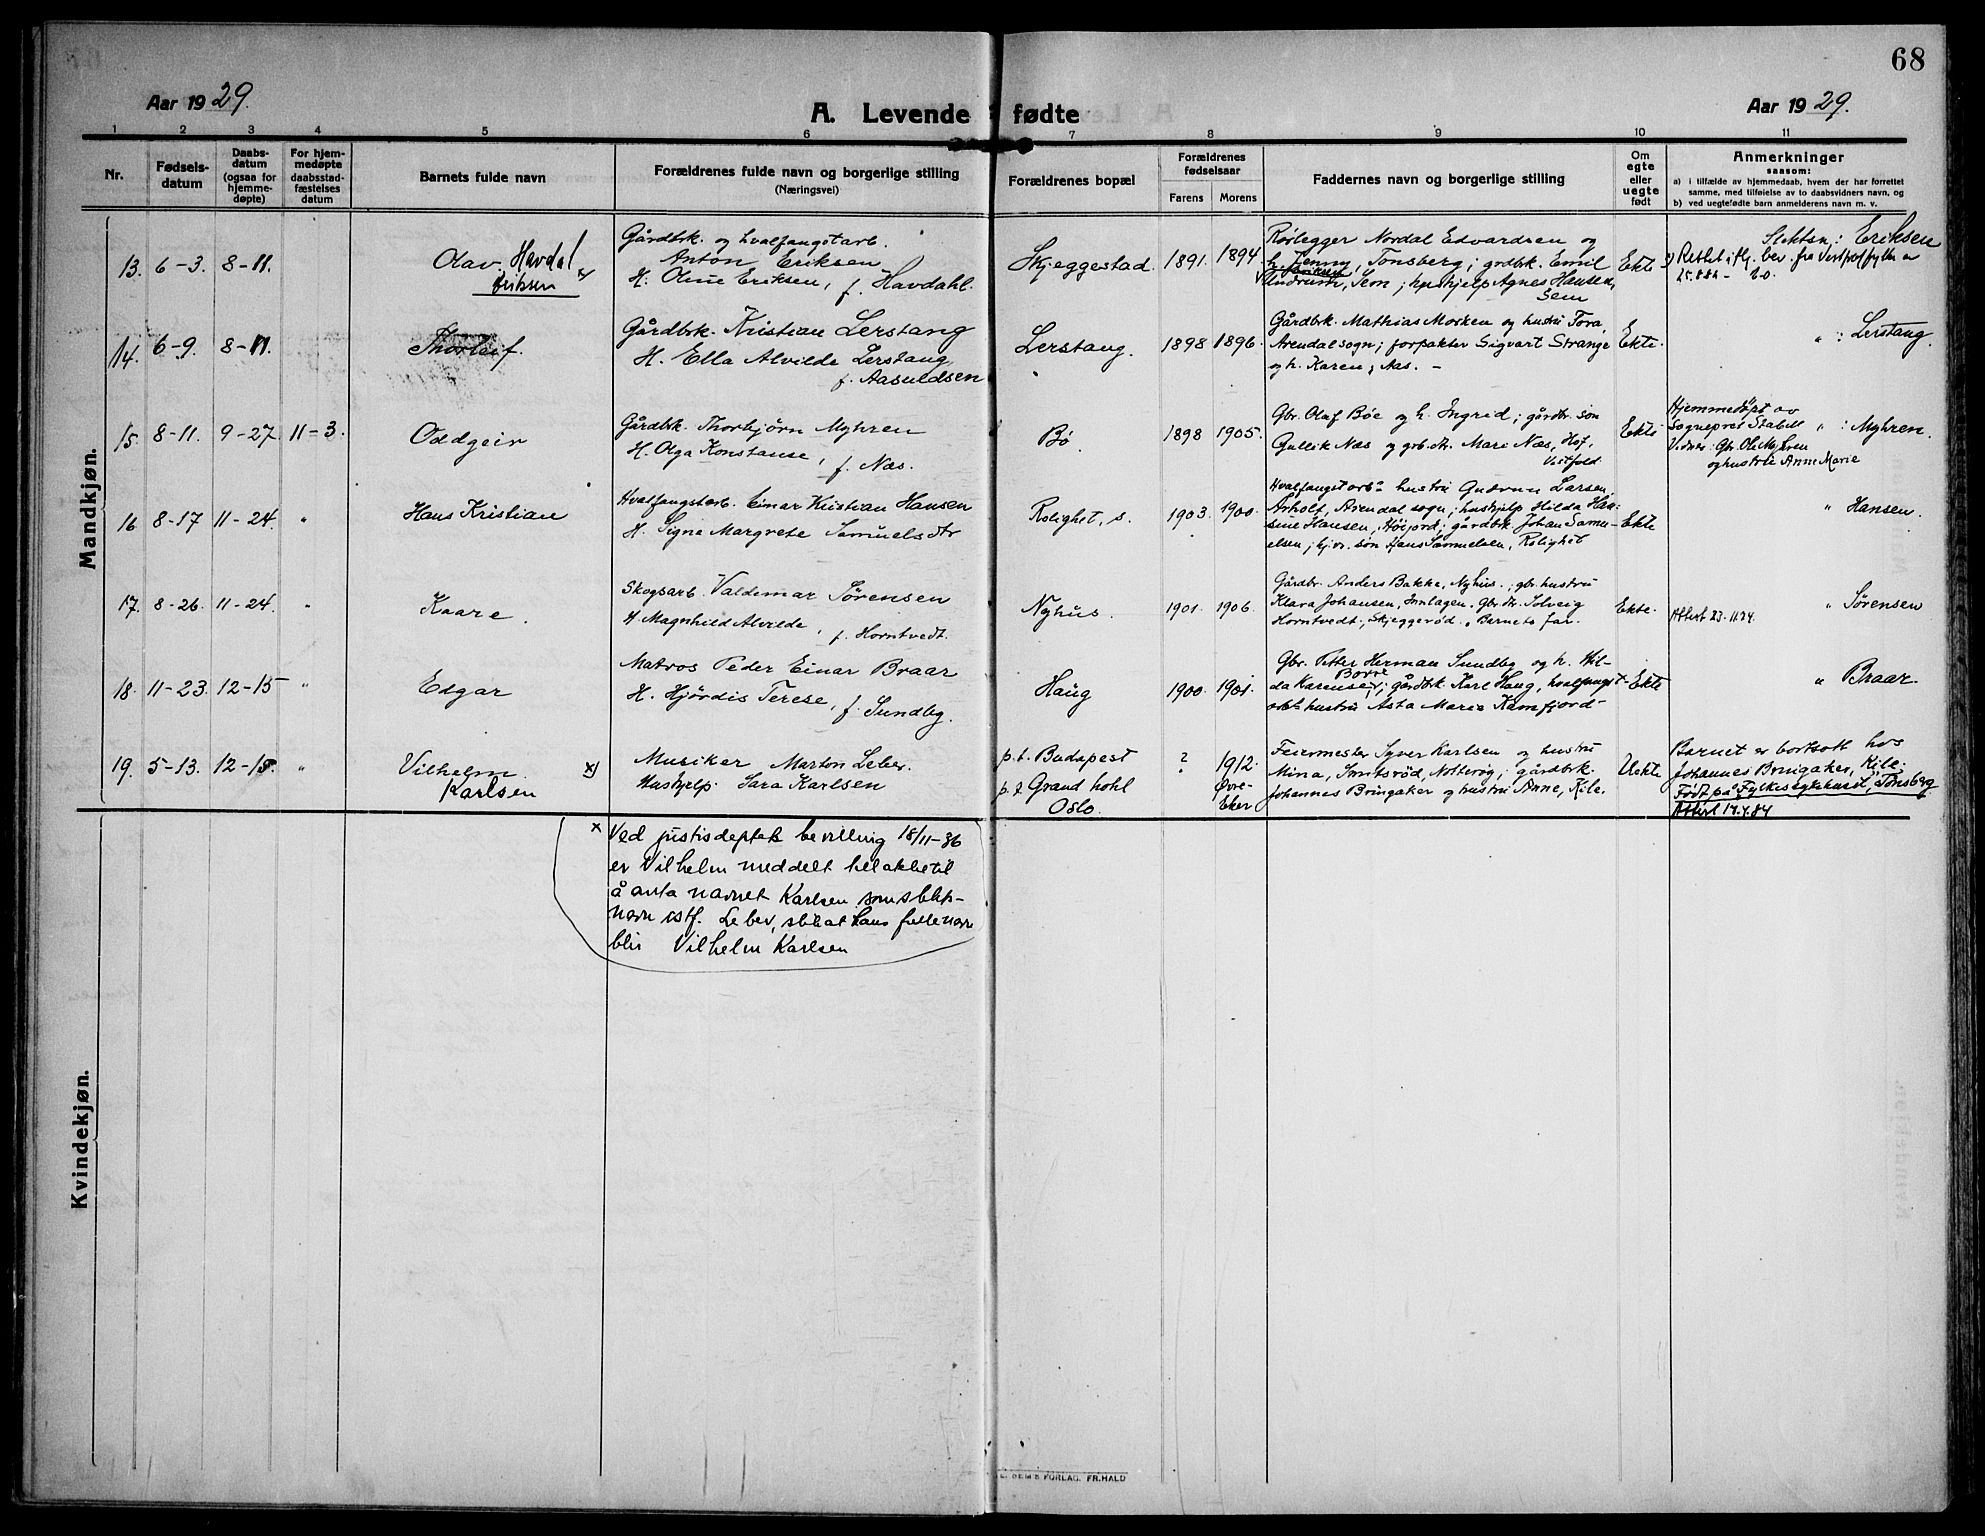 68
Aar 1929.
A. Levende fødte
Aar 1929.
1 2 3 4 5 6 7 8 9 10 11
Nr.
Fødsels-
datum
Daabs-
datum
(ogsaa for
hjemme-
døpte)
For hjem-
medøpte
daabsstad-
fæstelses
datum
Barnets fulde navn
Forældrenes fulde navn og borgerlige stilling
(Næringsvei)
Forældrenes bopæl
Forældrenes
fødselsaar
Farens Morens
Faddernes navn og borgerlige stilling
Om
egte
eller
uegte
født
Anmerkninger
saasom:
a) i tilfælde av hjemmedaab, hvem der har forrettet
samme, med tilføielse av to daabsvidners navn, og
b) ved uegtefødte barn anmelderens navn m. v.
Mandkjøn.
13. 6-3. 8-11.
Olav Havdal
Eriksen
Gårdbrk. og hvalfangstarb.
Anton Eriksen
H. Oline Eriksen, f. Havdahl.
Skjeggestad. 1891. 1894.
Rørlegger Nordal Edvardsen og
h. Jenny, Tønsberg; grdbrk. Emil
Undrum, Sem; hushjelp Agnes Hansen,
Sem
Ekte
Slektsn.: Eriksen
Rettet ifly. bev. fra Vestfold
14. 6-9. 8-11.
Thorleif.
Gårdbrk. Kristian Lerstang
H. Ella Alvilde Lerstang
f. Aasuldsen
Lerstang. 1898 1896.
Gårdbrk. Mathias Morken og hustru Tora,
Arendal sogn; forpakter Sigvart Strange
og h. Karen, Aas. -
Ekte.
" : Lerstang.
15. 8-11. 9-27. 11-3.
Oddgeir
Gårdbrk. Thorbjørn Myhren
H. Olga Konstanse, f. Næs.
Bø 1898 1905.
Gbr. Olaf Bøe og h. Ingrid; gårdbr. søn
Gullik Næs og grb.dtr. Mari Næs, Hof,
Vestfold
Ekte
Hjemmedøpt av
Sogneprest Stabell " : Myhren.
Vidner: Gbr. Ole Myhren
og hustru Anne Marie
16 8-17 11-24. "
Hans Kristian
Hvalfangstarb. Einar Kristian Hansen
H. Signe Margrete Samuelsdtr
Rolighet, s. 1903. 1900.
Hvalfangstarb.s hustru Gudrun Larsen,
Arholt, Arendal sogn; hushjelp Hilda Han-
sine Hansen, Høijord; gårdbrk. Johan Samu-
elsen; hjv. søn Hans Samuelsen, Rolighet
Ekte
" Hansen.
17. 8-26. 11-24. "
Kaare.
Skogsarb. Valdemar Sørensen
H. Magnhild Alvilde, f. Horntvedt.
Nyhus. 1901. 1906.
Gårdbr. Anders Bakke, Nyhus.; gbr. hustru
Klara Johansen, Innlagen. Gbr. dtr. Solveig
Horntvedt, Skjeggerød. Barnets far.
Ekte.
" Sørensen
Attest 23.11.74.
18. 11-23. 12-15 "
Edgar
Matros Peder Einar Braar
H. Hjördis Terese, f. Sundby.
Haug 1900. 1901.
Gbr. Petter Herman Sundby og h. Hil-
da Karense, Borre; gårdbrk. Karl Haug, hvalfangst-
arb.s hustru Asta Marie Kamfjord-
Ekte
" Braar.
19. 5-13. 12-15. "
Vilhelm
Karlsen
x)
Musiker Marton Leber.
Hushjelp. Sara Karlsen
p.t. Budapest
p.t. Grand hotel
Oslo.
? 1912.
Øvre-
Eker
Feiermester Syver Karlsen og hustru
Mina, Smitsrød, Nøtterøy; gårdbrk.
Johannes Bringaker og hustru Anne, Kile.
Uekte
Barnet er bortsatt hos
Johannes Bringaker, Kile.
Født på Fylkessykehuset, Tønsberg
Attest 17.4.84
x Ved justisdeptets bevilling 18/11-36
er Vilhelm meddelt tillatelse til
å anta navnet Karlsen som slekts-
navn istf. Leber, slik at hans fulle navn
blir Vilhelm Karlsen
Kvindekjøn.
FORLAG. FR. HALD